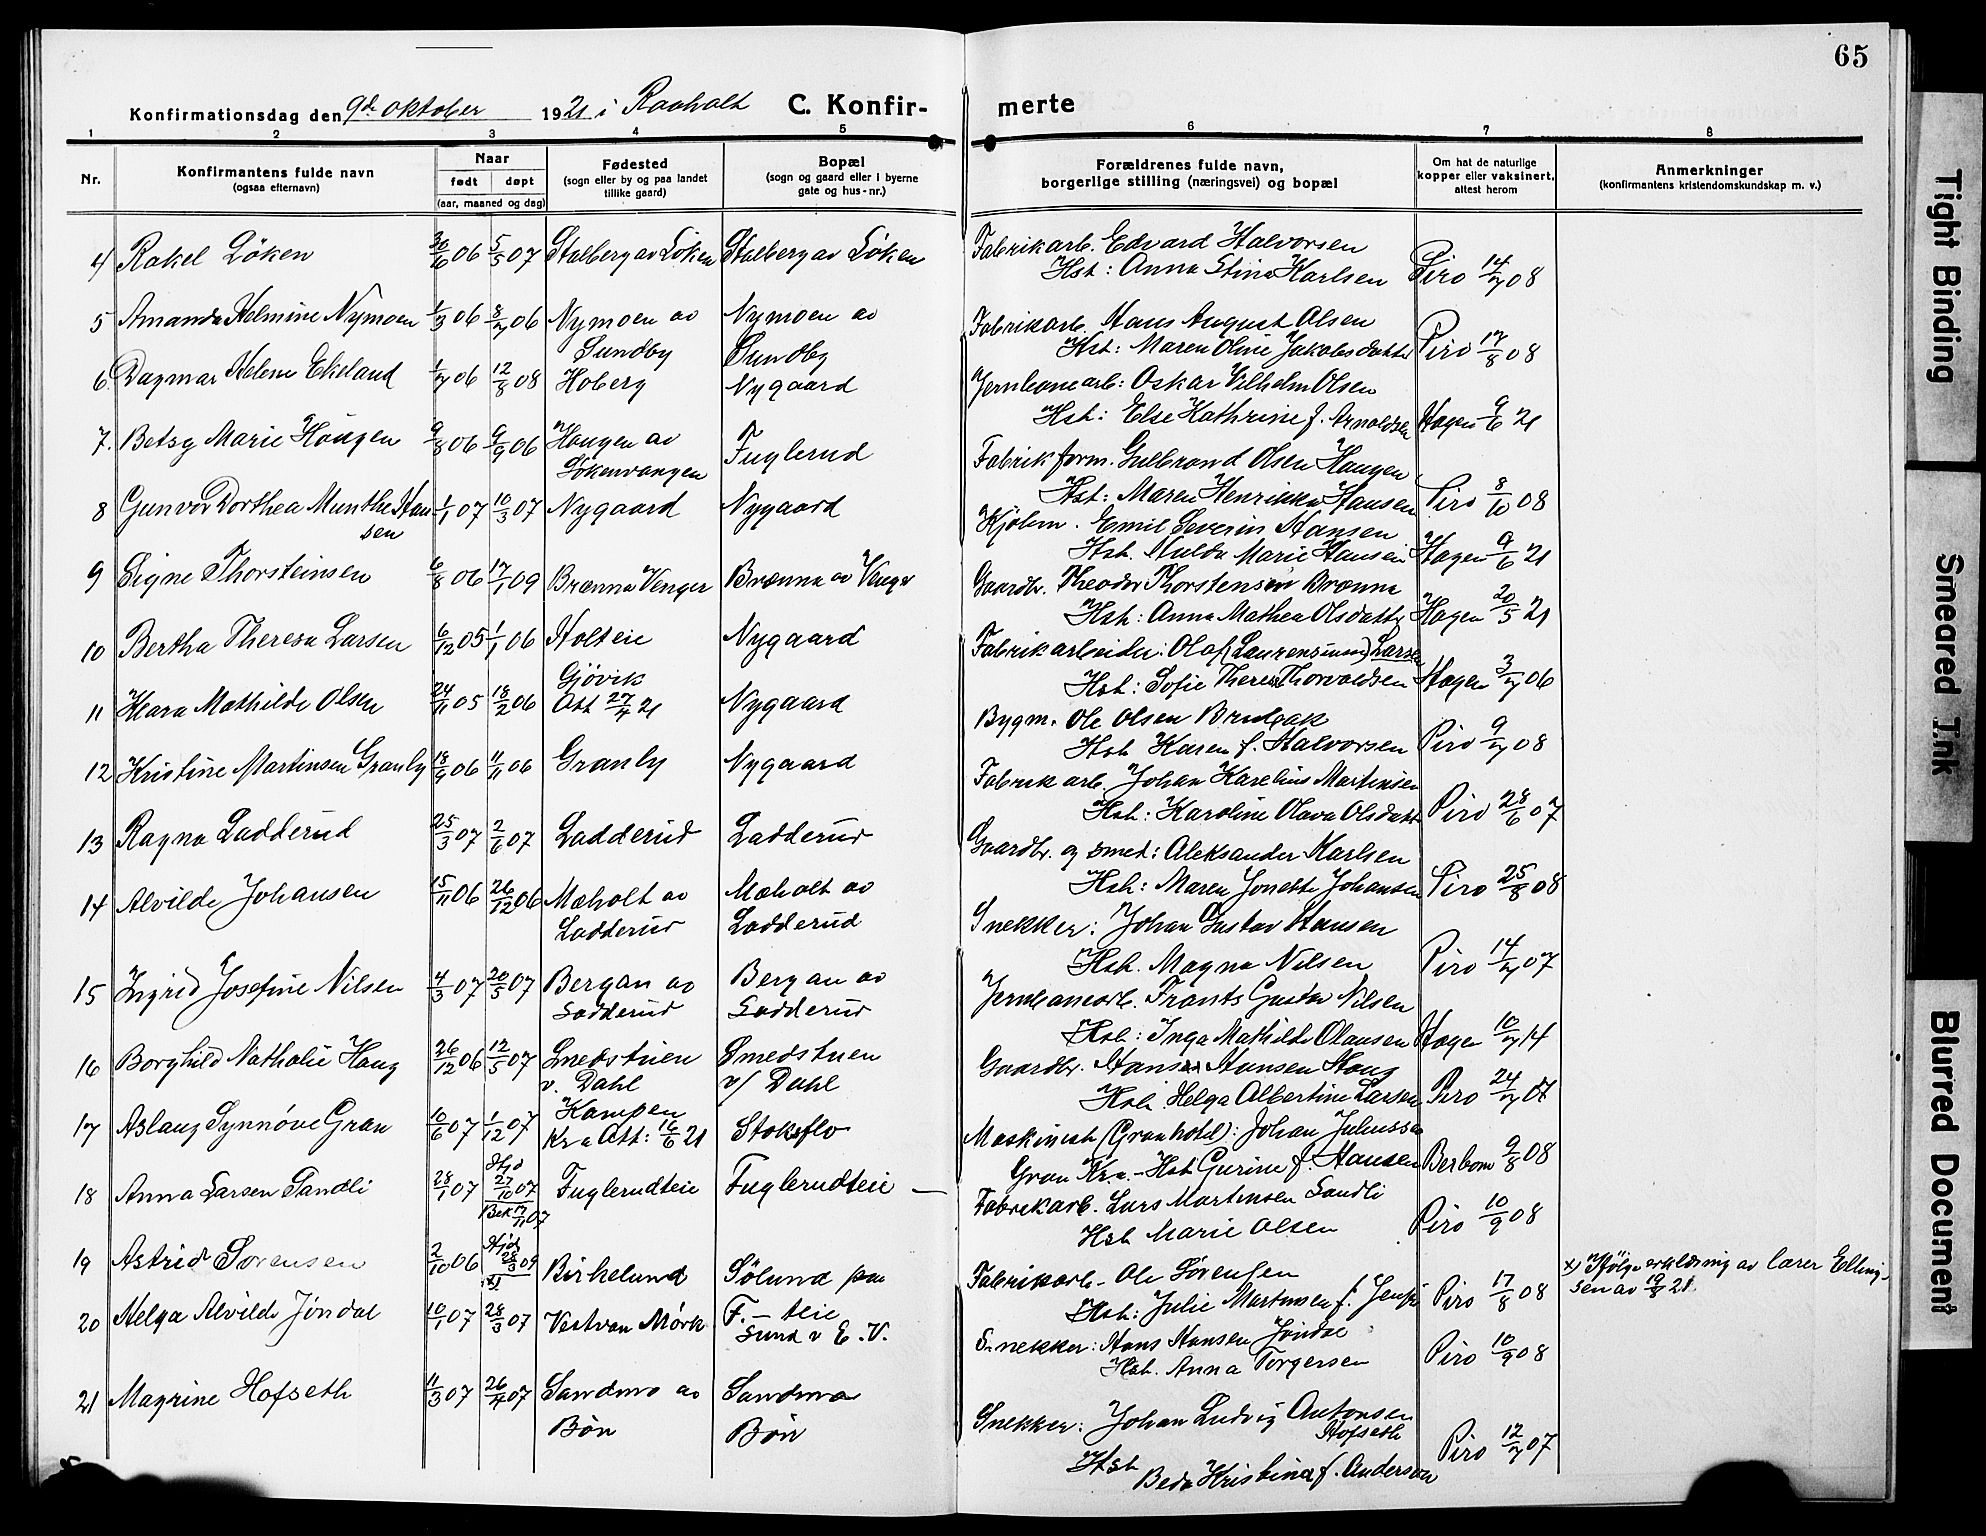 65
Konfirmationsdag den 9de oktober 1921 i Raaholt C. Konfirmerte
1 2 3 4 5 6 7 8
Nr.
Konfirmantens fulde navn (ogsaa efternavn)
Naar født døpt (aar, maaned og dag)
Fødested (sogn eller by og paa landet tillike gaard)
Bopæl (sogn og gaard eller i byerne gate og hus-nr.)
Forældrenes fulde navn, borgerlige stilling (næringsvei) og bopæl
Om hat de naturlige kopper eller vaksinert, attest herom
Anmerkninger (konfirmantens kristendomskundskap m. v.)
4) Rakel Løken 30/6 06 5/5 07 Stalberg av Løken Stalberg av Løken Fabrikarb. Edvard Halvorsen
Hst: Anna Stina Karlsen Piro 14/7 08
5 Amanda Helmine Nymoen 1/3 06 8/7 06 Nymoen av Sundby Nymoen av Sundby Fabrikarb. Hans August Olsen
Hst: Maren Oline Jakobsdatter Piro 17/8 08
6. Dagmar Helene Ekeland 1/7 06 12/8 08 Hoberg Nygaard Jernbanearb: Oskar Vilhelm Olsen
Hst: Else Kathrine f. Arnoldsen Hagen 9/6 21
7. Betsy Marie Haugen 9/8 06 9/9 06 Haugen av Løkenvangen Fuglerud Fabrikform. Gulbrand Olsen Haugen
Hst: Maren Henrikke Hansen Piro 8/10 08
8 Gunvor Dorthea Munthe Hansen 1/1 07 10/3 07 Nygaard Nygaard Kjølm. Emil Severin Hansen
Hst. Hulda Marie Hansen Hagen 9/6 21
9 Signe Thorsteinsen 6/8 06 17/1 09 Brænna Venger Brænna av Venger Gaardbr. Theodor Thorstensen Brænna
Hst: Anna Mathea Olsdatter Hagen 20/5 21
10 Bertha Theresa Larsen 6/12 05 1/1 06 Holteie Nygaard Fabrikarbeider: Olaf (Laurensius) Larsen
Hst: Sofie Theres Thorvaldsen Hagen 3/7 06
11 Klara Mathilde Olsen 24/11 05 18/2 06 Gjøvik Att 27/4 21 Nygaard Bygm. Ole Olsen
Hst Karen f. Halvorsen Piro 9/7 08
12 Kristine Martinsen Granly 18/9 06 11/11 06 Granly Nygaard Fabrikarb. Johan Karelius Martinsen
Hst: Karoline Olava Olsdatt Piro 28/6 07
13 Ragna Ladderud 25/3 07 2/6 07 Ladderud Ladderud Gaardbr. og smed: Aleksander Karlsen
Hst: Maren Jonette Johansen Piro 25/8 08
14 Alvilde Johansen 15/11 06 26/12 06 Mæholt av Ladderud Mæholt av Ladderud Snekker: Johan Gustav Hansen
Hst. Magna Nilsen Piro 14/7 07
15 Ingrid Josefine Nilsen 4/3 07 20/5 07 Bergan av Ladderud Bergan av Ladderud Jernbanearb. Frants Gustav Nilsen
Hst: Inga Mathilde Olausen Hagen 10/7 14
16 Borghild Nathalie Haug 26/12 06 12/5 07 Smedstuen v. Dahl Smedstuen v/ Dahl Gaardbr. Hans Hansen Haug
Hst. Helga Albertine Larsen Piro 24/7 07
17 Aslaug Synnøve Gran 10/6 07 1/12 07 Kampen Kra Att: 16/6 21 Stoksflo Maskinist (Granhotel): Johan Juliussen
Gran Kra - Hst Gurine f. Hansen Berbom 9/8 08
18 Anna Larsen Sandli 28/1 07 Hjd 27/10 07 Bek 17/11 07 Fuglerudteie Fuglerudteie — Fabrikarb. Lars Martinsen Sandli
Hst Marie Olsen Piro 10/9 08
19 Astrid Sørensen 2/10 06 Hjd 28/3 09 x) Birkelund Sølund paa F. - teie Fabrikarb - Ole Sørensen
Hst: Julie Martinsen f. Piro 17/8 08 x) Ifølge erklæring av lærer Ellingsen av 19/8 21.
20 Helga Alvilde Jøndal 10/1 07 28/3 07 Vestvan Mørk Sund v E. V. Snekker: Hans Hansen Jøndal
Hst. Anna Torgersen Piro 10/9 08
21 Magrine Hofseth 11/3 07 26/4 07 Sandmo av Bøn Sandmo Bøn Snekker: Johan Ludvig Antonsen Hofseth
Hst Beda Kristina f. Anderson Piro 12/7 07
Tight Binding
Smeared Ink
Blurred Document